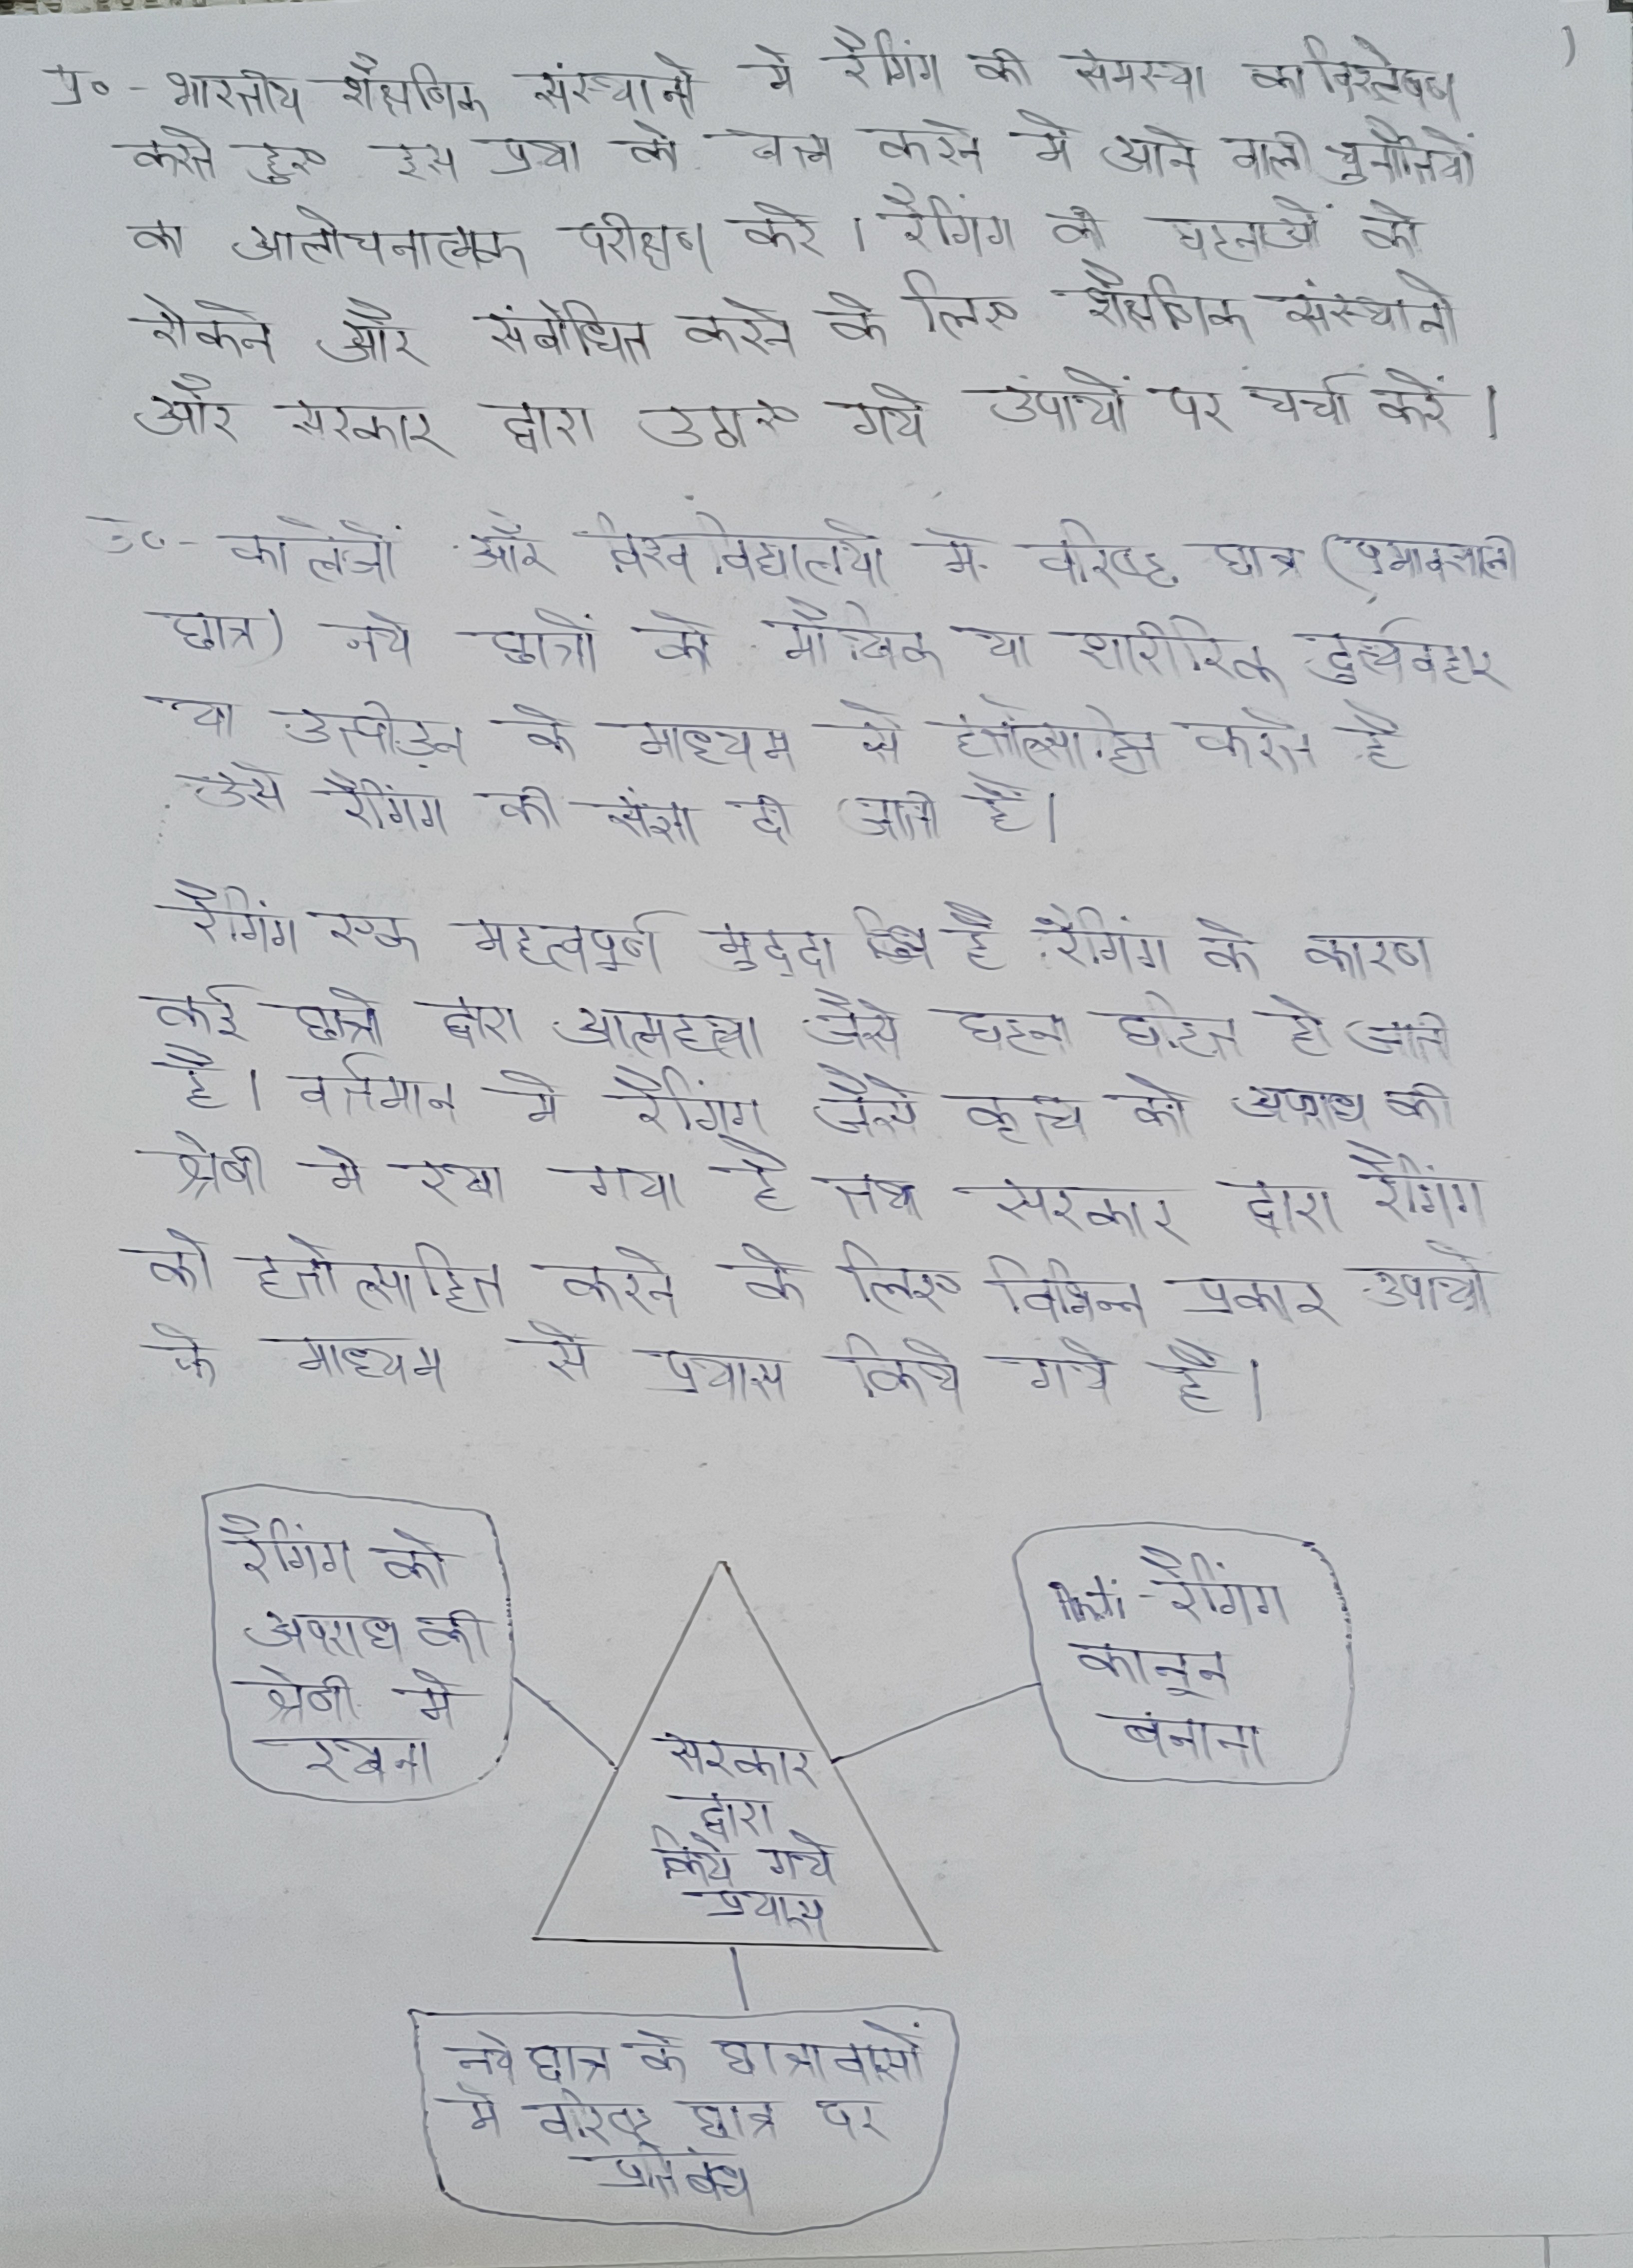 प्र० - भारतीय शैक्षणिक संस्थानों में रैगिंग की समस्या का विश्लेषण
करते हुए इस प्रथा को खत्म करने में आने वाली चुनौतियों
का आलोचनात्मक परीक्षण करें। रैगिंग की घटनाओं को
रोकने और संबोधित करने के लिए शैक्षणिक संस्थानों
और सरकार द्वारा उठाए गये उपायों पर चर्चा करें।
उ० - कालेजों और विश्वविद्यालयों में वरिष्ठ छात्र (प्रभावशाली
छात्र) नये छात्रों को मौखिक या शारीरिक दुर्व्यवहार
या उत्पीड़न के माध्यम से हतोत्साहित करते है
उसे रैगिंग की संज्ञा दी जाती है।
रैगिंग एक महत्वपूर्ण मुद्दा है रैगिंग के कारण
कई छात्रो द्वारा आत्महत्या जैसे घटना घटित हो जाती
है। वर्तमान मे रैगिंग जैसे कृत्य को अपराध की
श्रेणी मे रखा गया है तथा सरकार द्वारा रैगिंग
को हतोत्साहित करने के लिए विभिन्न प्रकार उपायो
के माध्यम से प्रयास किये गये है।
रैगिंग को
अपराध की
श्रेणी मे
रखना
Anti-रैगिंग
कानून
बनाना
सरकार
द्वारा
किये गये
प्रयास
नये छात्र के छात्रावासों
मे वरिष्ठ छात्र पर
प्रतिबंध